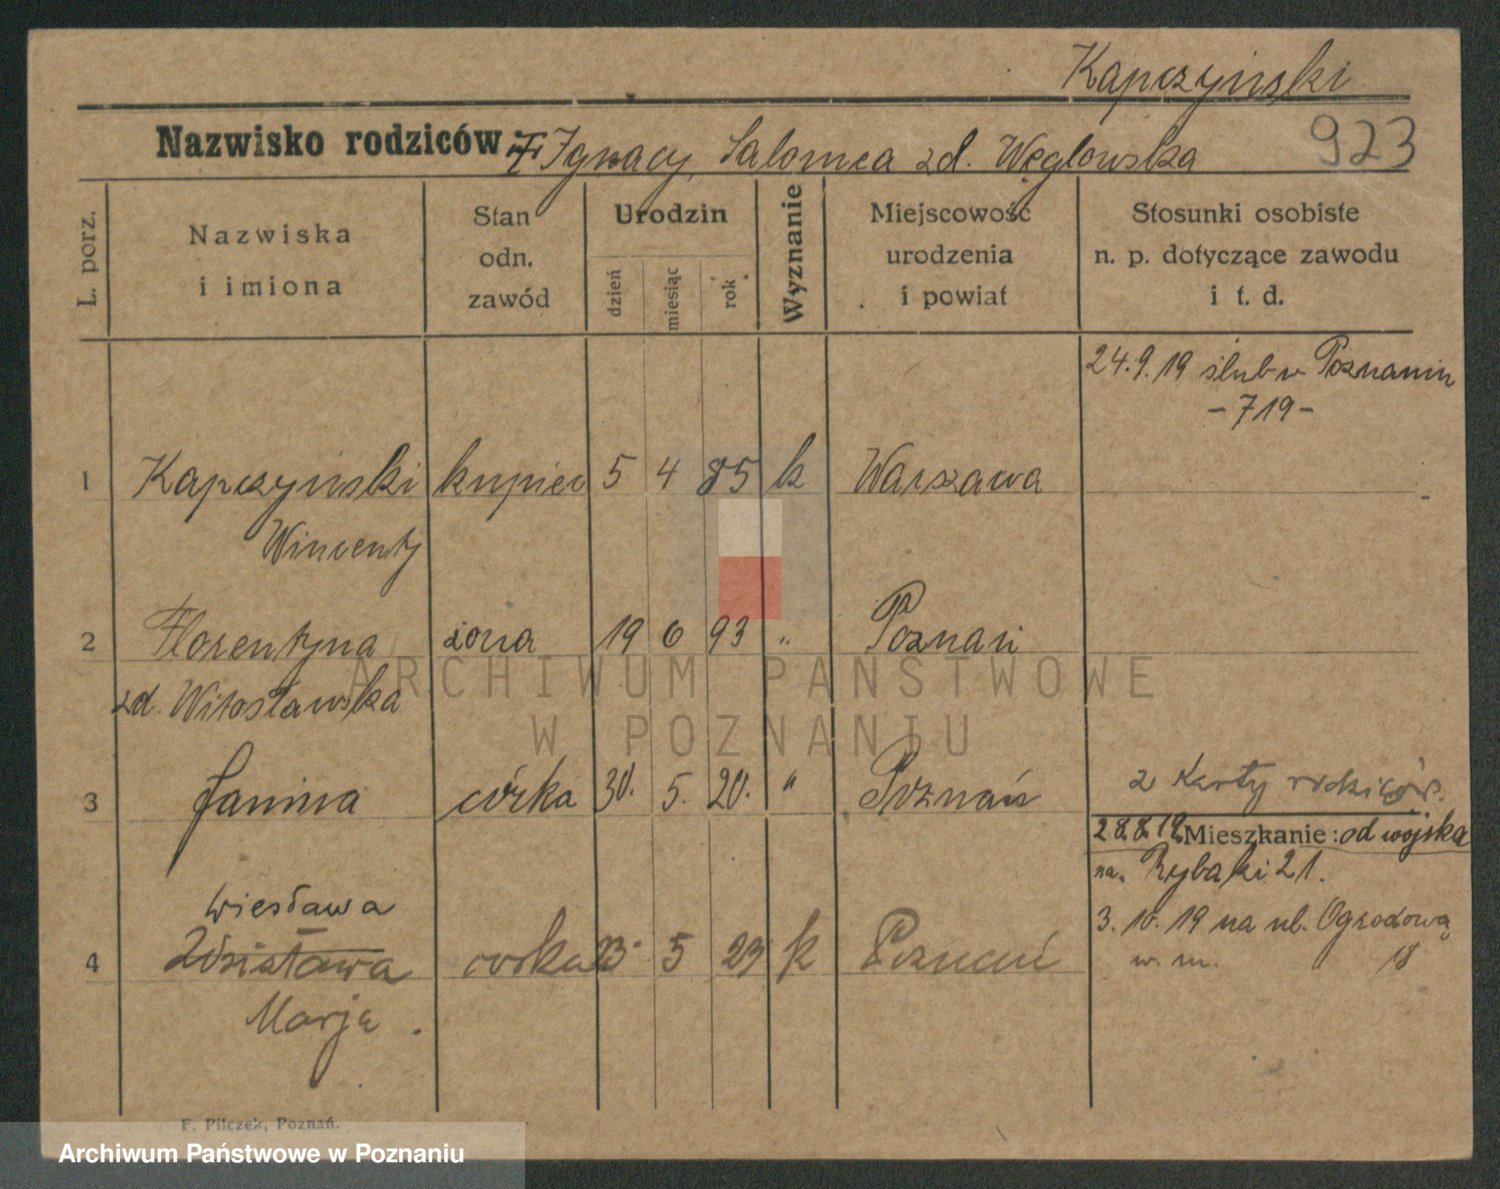 Kapczyński
Nazwisko rodziców: Ignacy, Salomea zd. Węglowska 923
L. porz.
Nazwiska
i imiona
Stan
odn.
zawód
Urodzin
dzień
miesiąc
rok
Wyznanie
Miejscowość
urodzenia
i powiat
Stosunki osobiste
n. p. dotyczące zawodu
i t. d.
24.9.19 ślub w Poznaniu
-719-
1 Kapczyński kupiec 5 4 85 k Warszawa
Wincenty
2 Florentyna żona 19 6 93 " Poznań
zd. Witosławska
ARCHIWUM PAŃSTWOWE
W POZNANIU
3 Janina córka 30. 5. 20. " Poznań
2 Karty rodziców.
28.8.19. Mieszkanie: od wojska
na. Rybaki 21.
Wiesława
3. 10. 19 na ul. Ogrodową
4 Zdzisława córka 23. 5 23 k Poznań
w. m. 18
Marja.
F. Pilczek, Poznań.
Archiwum Państwowe w Poznaniu